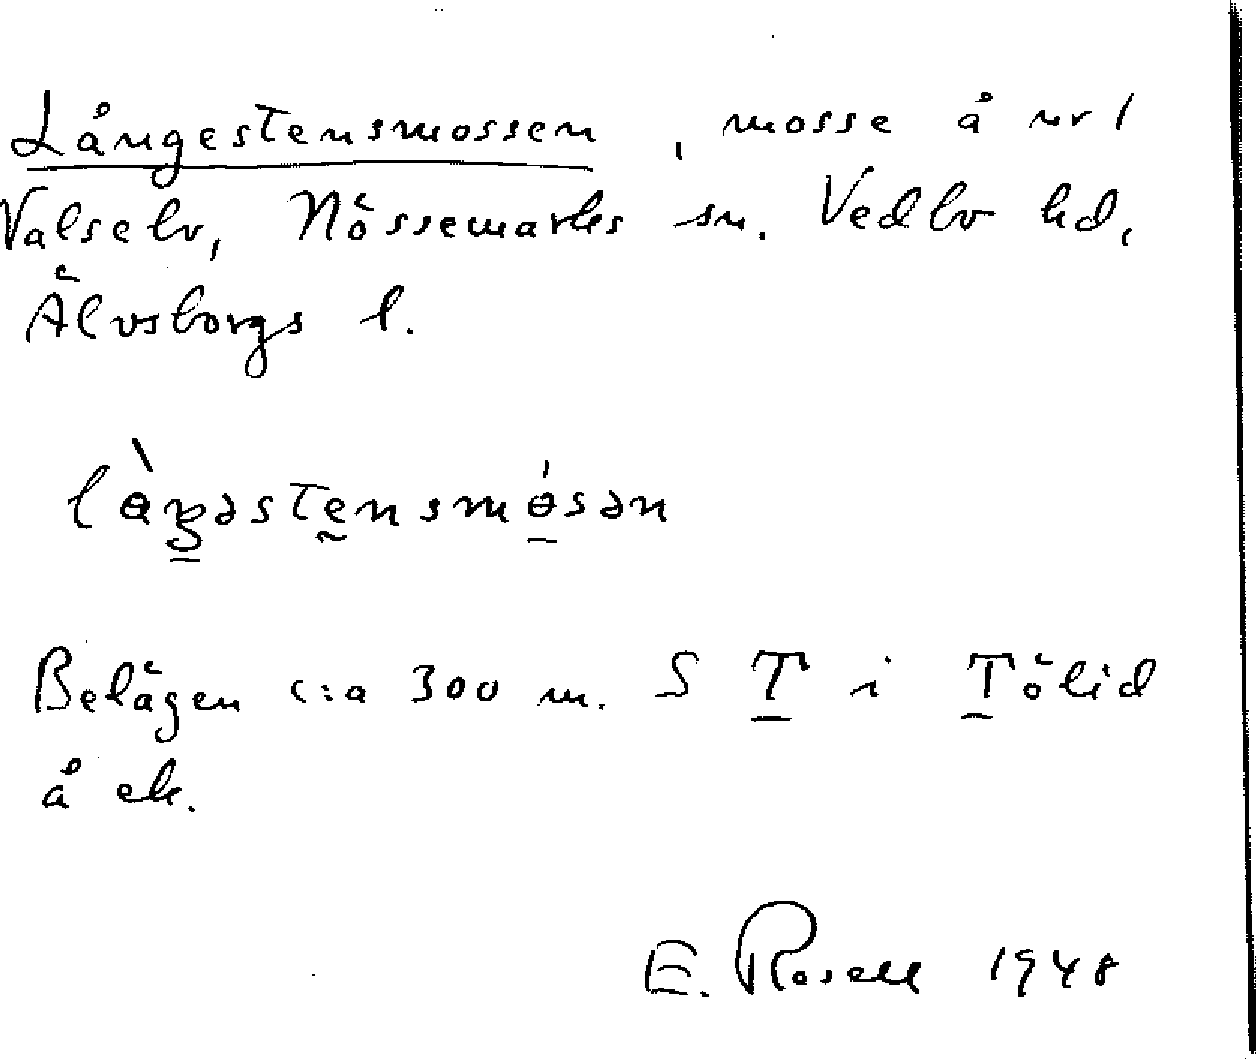 Långestensmossen, mosse å nr 1
Valsebo, Nössemarks sn. Vedbo hd,
Älvsborgs l.
lɵ̀ŋəstensmɵ́sən
Belägen c:a 300 m. S T i Tölid
å ek.
E. Rosell 1948